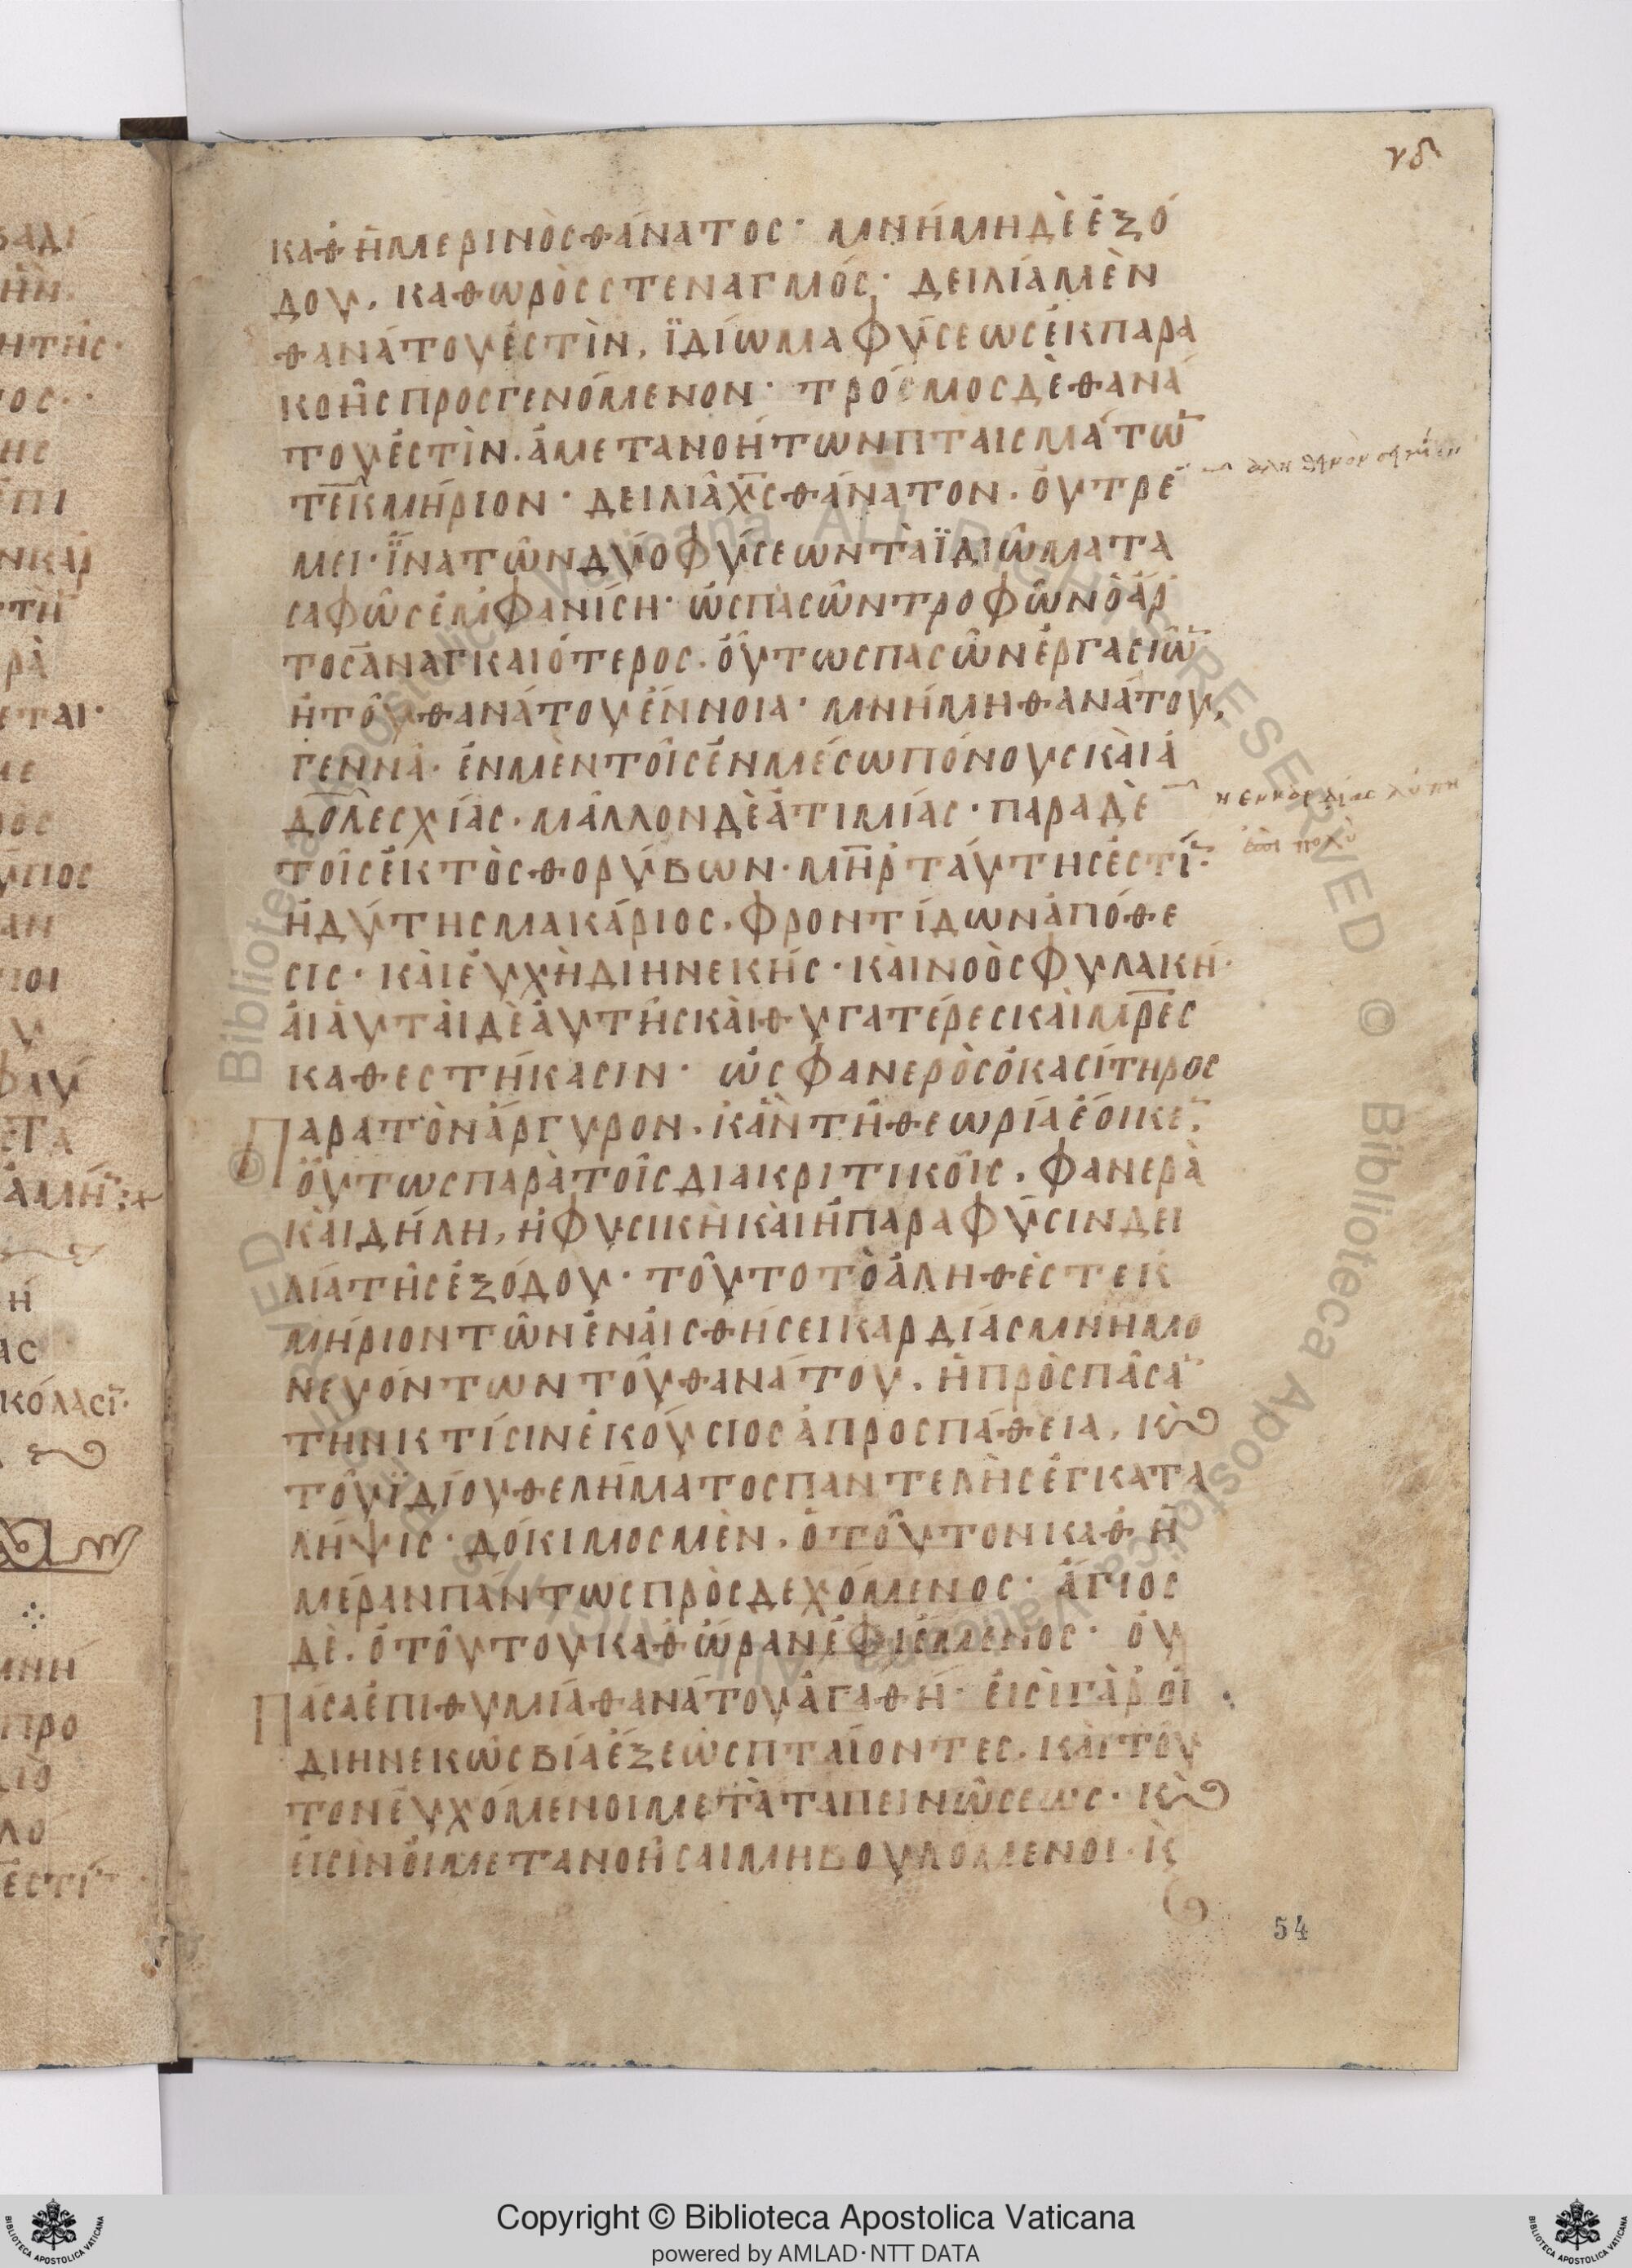 νδ
καθημερινὸς θάνατος· μνήμη δὲ ἐξό
δου, καθωρὸς στεναγμός· δειλία μὲν
θανάτου ἐστὶν, ϊδίωμα φύσεως ἐκ παρα
κοῆς προσγενόμενον· τρόμος δὲ θανά
του ἐστὶν. ἀμετανοήτων πταισμάτω̅
τεκμήριον· δειλιᾶ χ̅ς θάνατον. οὐ τρέ
μει· ἵνα τῶν δύο φύσεων τὰ ϊδιώματα
σαφῶς ἐμφανίση· ὡς πασῶν τροφῶν ὁ ἄρ
τος ἀναγκαιότερος. οὕτως πασῶν ἐργασιῶ̅
ἡ τοῦ θανάτου ἔννοια· μνήμη θανάτου,
γεννᾶ· ἐν μὲν τοῖς ἐν μέσω πόνους καὶ ἀ
δολεσχίας. μᾶλλον δὲ ἀτιμίας· παρα δὲ
τοῖς ἐκτὸς θορύβων. μ̅η̅ρ ταύτης ἐστί̅·
ἡδύτης μακάριος. φροντίδων ἀπόθε
σις· καὶ εὐχὴ διηνεκής· καὶ νοὸς φυλακή·
αἱ αὐταὶ δὲ αὐτῆς καὶ θυγατέρες καὶ μ̅ρ̅ε̅ς
καθεστήκασιν· ὡς φανερὸς ὁ κασίτηρος
Παρα τὸν ἄργυρον. κἂν τῆ θεωρία ἔοικε̅.
οὕτως παρὰ τοῖς διακριτικοῖς. φανερὰ
καὶ δήλη, ἡ φυσικὴ καὶ ἡ παρα φύσιν δει
λία τῆς ἐξόδου· τοῦτο τὸ ἀληθὲς τεκ
μήριον τῶν ἐν αἰσθήσει καρδίας μνημο
νευόντων τοῦ θανάτου. ἡ πρὸς πᾶσα̅
την κτίσιν ἑκούσιος ἀπροσπάθεια, κ̀
τοῦ ϊδίου θελήματος παντελὴς ἐγκατα
λήψις· δόκιμος μὲν. ὁ τοῦτον καθ ἡ
μέραν πάντως πρὸσδεχόμενος· ἅγιος
δὲ. ὁ τοῦτου καθ ὥραν ἐφιέμενος· οὐ
Πάσα ἐπιθυμία θανάτου ἀγαθή· εἰσὶ γὰρ οἱ
διηνεκῶς βία ἕξεὼς πταίοντες. καὶ τοῦ
τον εὐχόμενοι μετὰ ταπεινῶσεως· κ̀
εἰσὶν οἱ μετανοῆσαι μὴ βουλόμενοι· κ̀
54
Copyright © Biblioteca Apostolica Vaticana
powered by AMLAD·NTT DATA